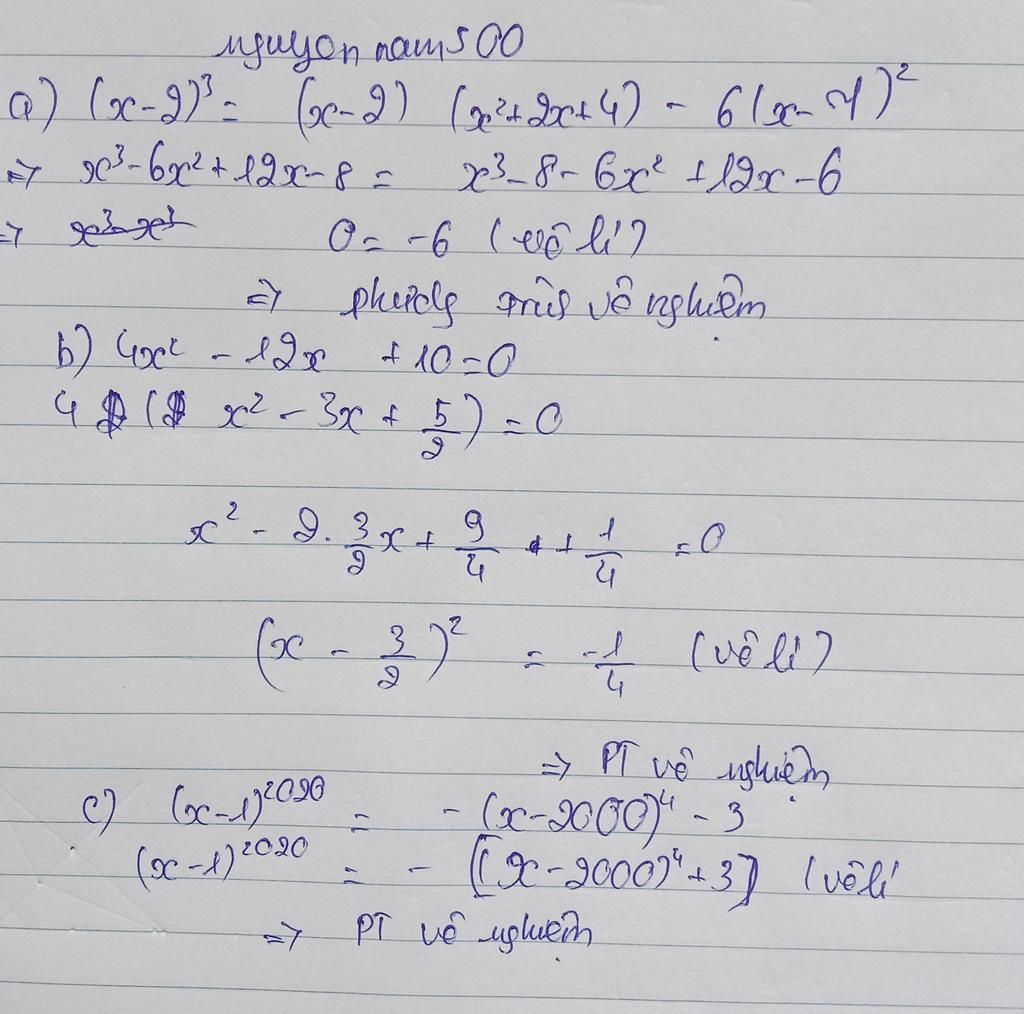 nguyen nam500
a) (x-2)³ = (x-2) (x²+2x+4) - 6(x-1)²
=> x³-6x²+12x-8 = x³-8-6x²+12x-6
=> x³-x³ 0=-6 (vô lí)
=> phương trình vô nghiệm
b) 4x² - 12x + 10=0
4 (x² - 3x + 5/2) = 0
x² - 2. 3/2 x + 9/4 + 1/4 = 0
(x - 3/2)² = -1/4 (vô lí)
=> PT vô nghiệm
c) (x-1)²⁰²⁰ = - (x-2000)⁴ - 3
(x-1)²⁰²⁰ = - [(x-2000)⁴+3] (vô lí
=> PT vô nghiệm